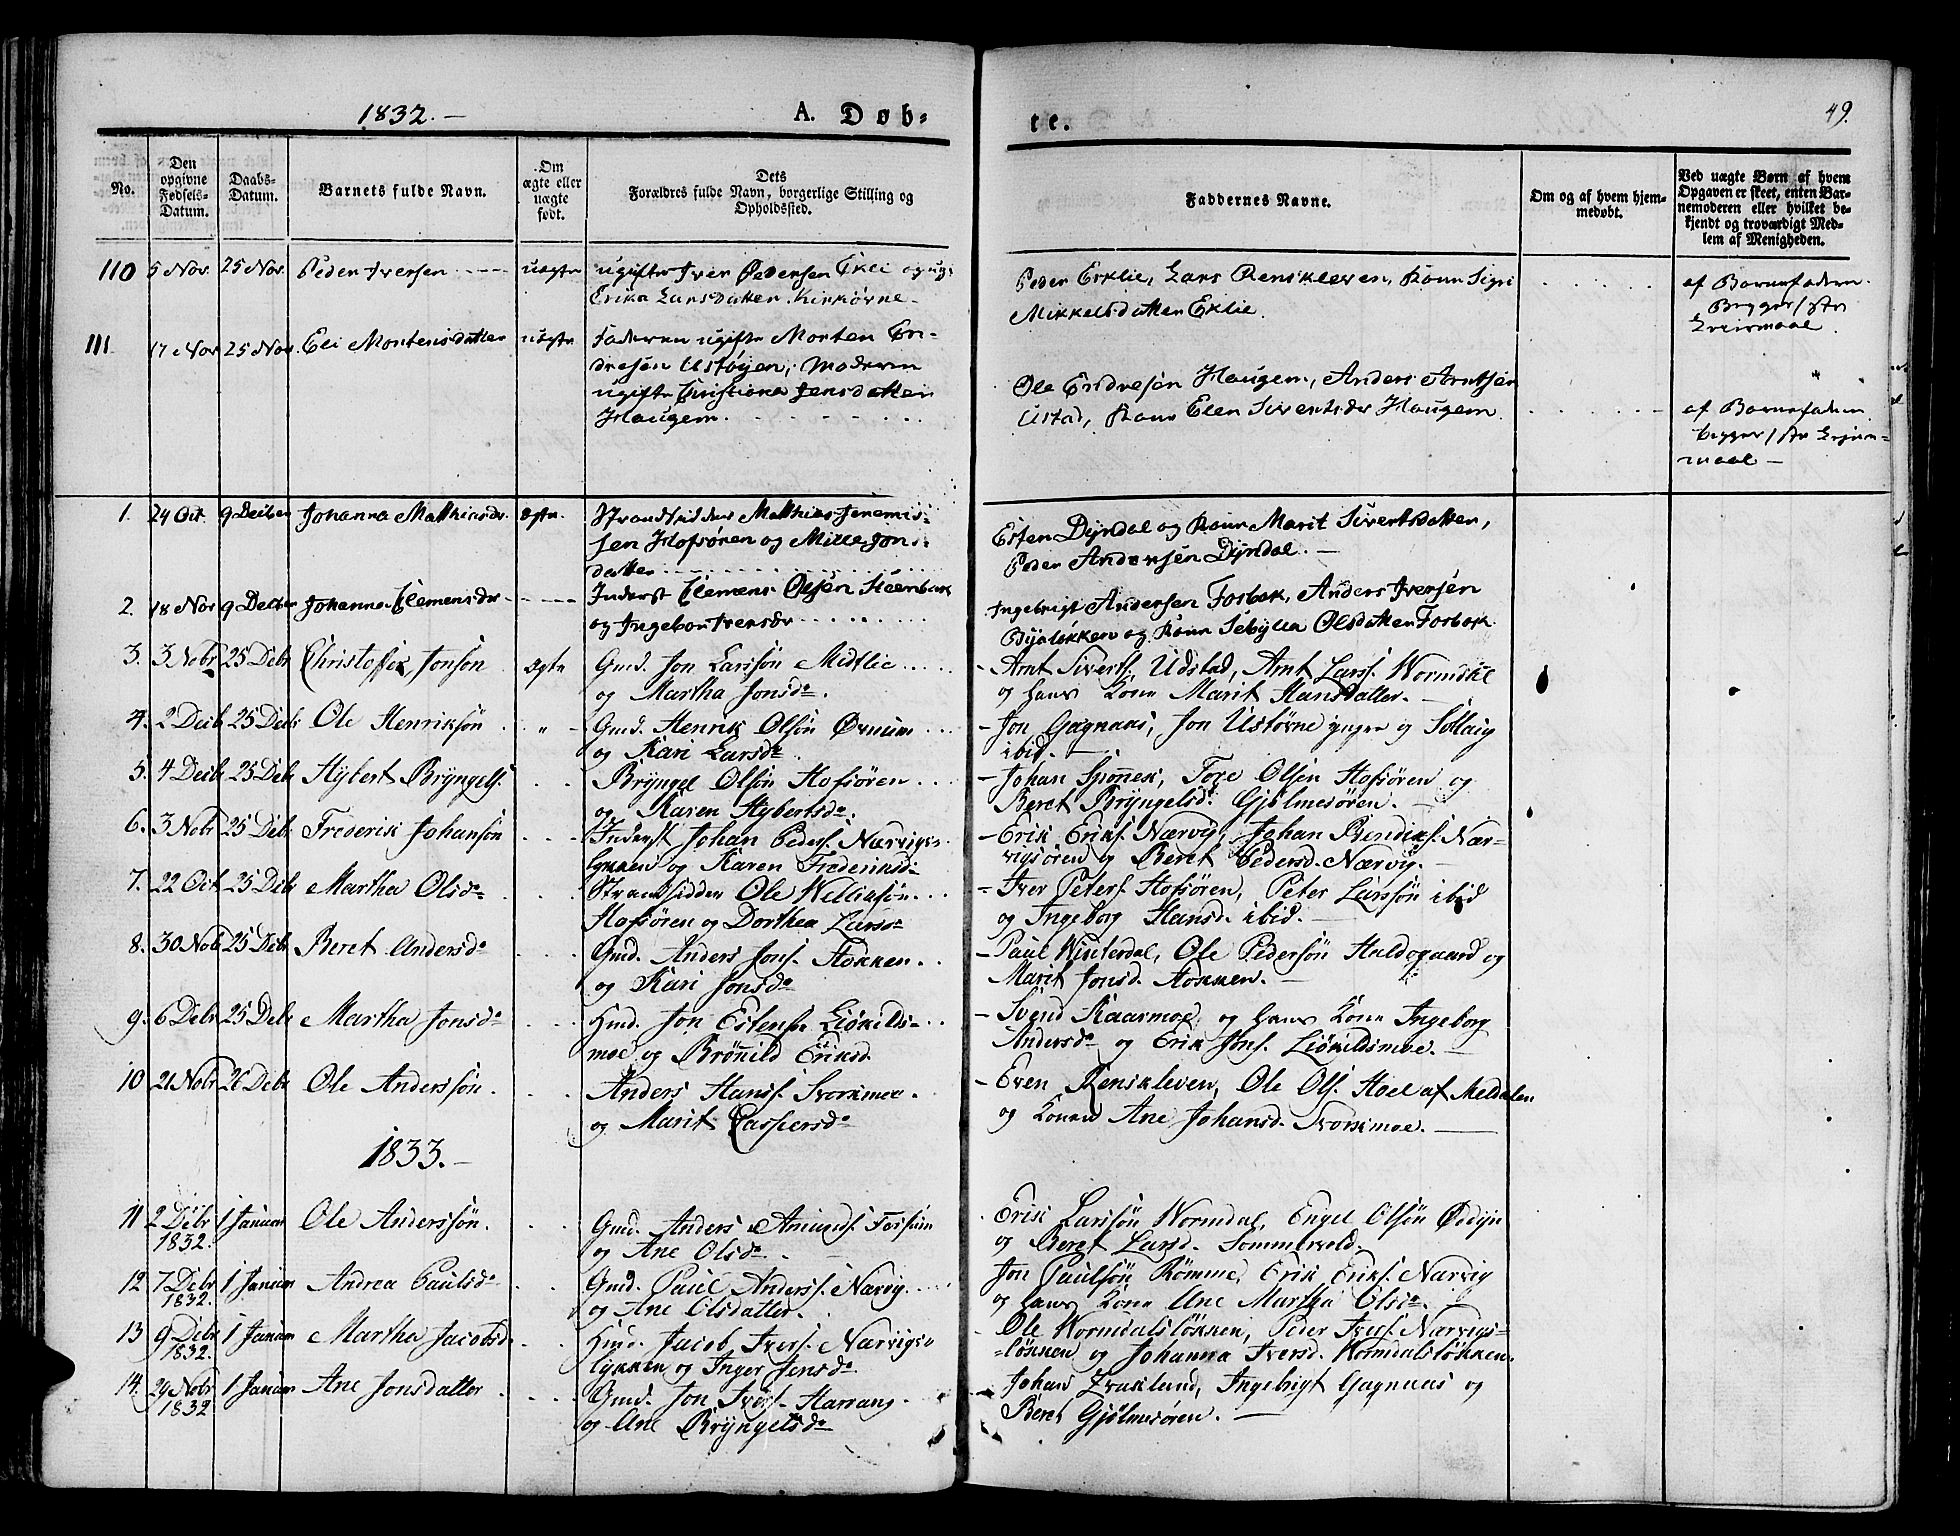 1832.
A. Døb-
te.
49.
No.
Den opgivne Fødsels-Datum.
Daabs-Datum.
Barnets fulde Navn.
Om ægte eller uægte født.
Dets Forældres fulde Navn, borgerlige Stilling og Opholdssted.
Faddernes Navne.
Om og af hvem hjem-medøbt.
Ved uægte Børn af hvem Opgaven er skeet, enten Bar-nemoderen eller hvilket be-kjendt og troværdigt Med-lem af Menigheden.
110 5 Nov. 25 Nov. Peder Iversen uægte ugifte Iver Pedersen Eklie og ugi
Erika Larsdatter Kirkøvne
Peder Eklie, Lars Rensklewen, Kone Sigri
Mikkelsdatter Eklie.
af Barnefaderen
111. 17 Nov 25 Nov. Eli Mortensdatter uægte Faderen ugifte Morten En-
dresen Ustøyen, Moderen
ugifte Christiana Jensdatter
Haugen.
Ole Endresen Haugen, Anders Arntsen
Ustad, Kone Elen Sivertsdr Haugen.
af Barnefaderen
1. 24 Oct. 9 Decber Johanna Mathiasdr. Ægte. Strandsidder Mathias Jeremis-
sen Hofsøren og Mille Jons-
datter
Esten Dyrdal og Kone Marit Sivertsdatter,
Peder Andersen Dyrdal.
2. 18 Nov 9 Decber Johanna Clemensdr Inderst Clemens Olsen Steenbak
og Ingebor Iversdr
Ingebrigt Andersen Fosbak, Anders Iversen
Byeløkken og Kone Sebylla Olsdatter Fosbak
3. 3 Nobr 25 Debr Christoffer Jonsøn Ægte Gmd. Jon Larssøn Midtlie
og Martha Jonsdr.
- Arnt Siverts. Udstad, Arnt Larss. Wormdal
og hans Kone Marit Hansdatter.
4. 2 Decb 25 Debr Ole Henriksøn " Gmd. Henrik Olsøn Ørnum
og Kari Larsdr
- Jon Gagnaas, Jon Ustøvne yngre og Sollaug
ibid.
5. 4 Decb 25 Debr Hybert Bryngels. Bryngel Olsøn Hofsøren
og Karen Hybertsdr.
- Johan Sponnes, Tore Olsen Hofsøren og
Beret Bryngelsd. Gjølmesøren.
6. 3 Nobr 25 Debr Frederik Johansøn Inderst Johan Peders. Nærvigs-
lykken og Karen Frederiksd.
- Erik Eriks. Nærvig, Johan Bendiks. Nær-
vigsøren og Beret Pedersd. Nærvig.
7. 22 Oct. 25 Debr Martha Olsdr Strandsidder Ole Williksøn
Hofsøren og Dorthea Larsdr
- Iver Peters. Hofsøren, Peter Larssøn ibid
og Ingeborg Hansd. ibid.
8. 30 Nobr 25 Debr Beret Andersdr Gmd. Anders Jons. Hokken
og Kari Jonsdr
- Paul Winterdal, Ole Pedersøn Huldogaard og
Marit Jonsd. Hokken.
9. 6 Debr 25 Debr Martha Jonsdr Hmd. Jon Estens. Liøkilds-
moe og Brønild Eriksd.
- Svend Kaarmoe og hans Kone Ingeborg
Andersdr og Erik Jons. Liøkildsmoe.
10 21 Nobr 26 Debr Ole Anderssøn. Anders Hanss. Svorkmoe
og Marit Caspersdr
- Even Rensklewen, Ole Ols. Hoel af Meldalen
og Konen Ane Johansd. Svorkmoe.
1833.
11 2 Debr 1832. 1 Januar Ole Anderssøn. Gmd. Anders Amunds. Forsum
og Ane Olsdr.
Erik Larssøn Wormdal, Engel Olsøn Ødeyn
og Beret Larsd. Sommervold.
12 7 Debr 1832. 1 Januar Andrea Paulsdr Gmd. Paul Anderss. Nærvig
og Ane Olsdatter.
Jon Paulsøn Rømme, Erik Eriks. Nærvig
og hans Kone Ane Martha Olsdr.
13 9 Debr 1832. 1 Januar Martha Jacobsdr Hmd. Jacob Ivers. Nærvigs-
lykken og Inger Jensdr
Ole Wormdalsløkken, Peder Ivers. Nærvigs-
=løkken og Johanna Iversd. Wormdalsløkken.
14. 29 Nobr 1832 1 Januar Ane Jonsdatter Gmd. Jon Ivers. Harrang
og Ane Bryngelsdr
Johan Kvaklund, Ingebrigt Gagnaas og
Beret Gjølmesøren.